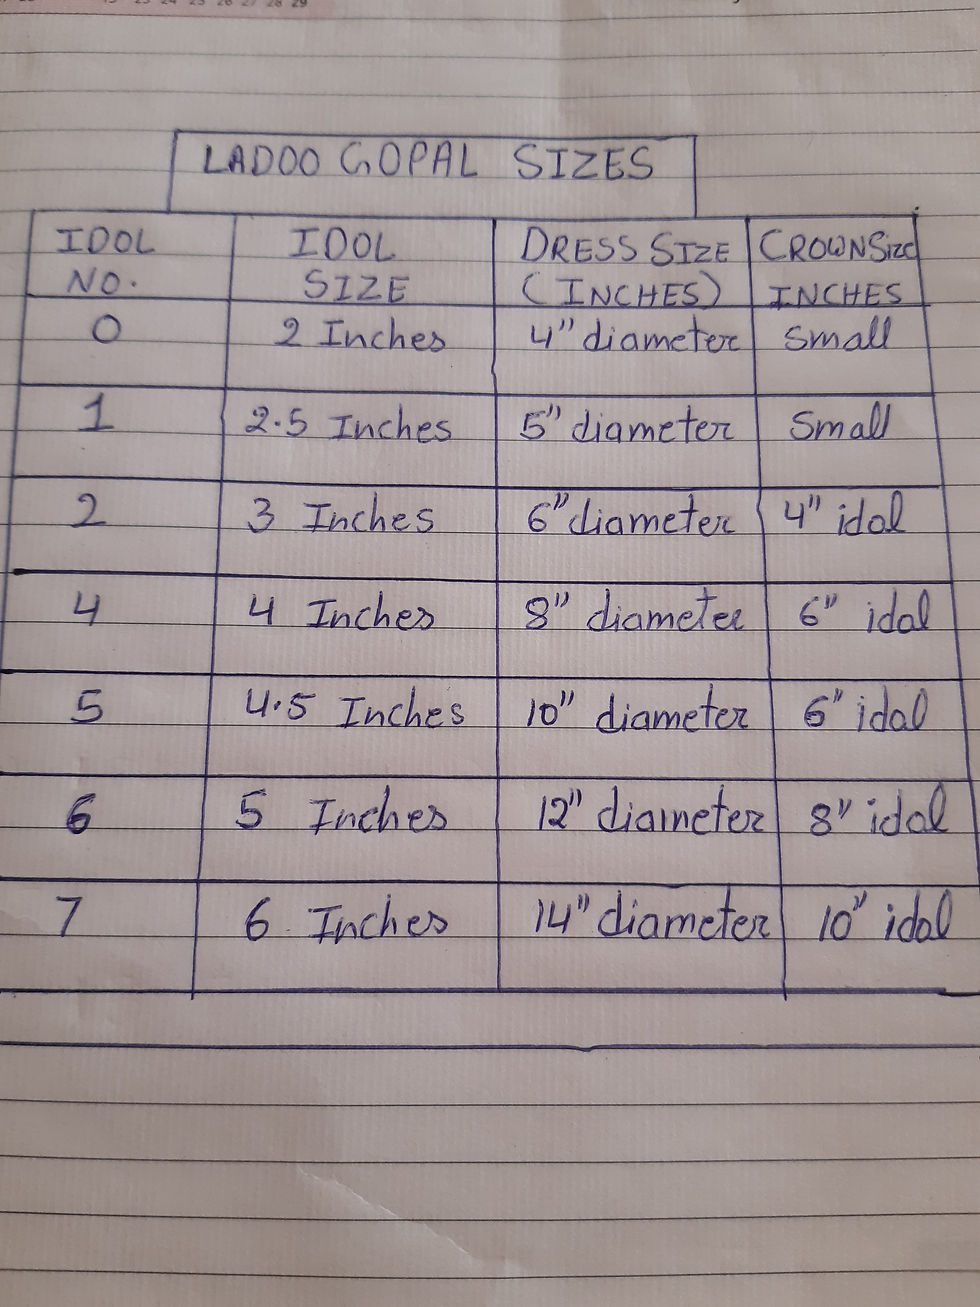 LADOO GOPAL SIZES
IDOL NO. IDOL SIZE DRESS SIZE (INCHES) CROWN Size INCHES
0 2 Inches 4" diameter Small
1 2.5 Inches 5" diameter Small
2 3 Inches 6" diameter 4" idol
4 4 Inches 8" diameter 6" idol
5 4.5 Inches 10" diameter 6" idol
6 5 Inches 12" diameter 8" idol
7 6 Inches 14" diameter 10" idol